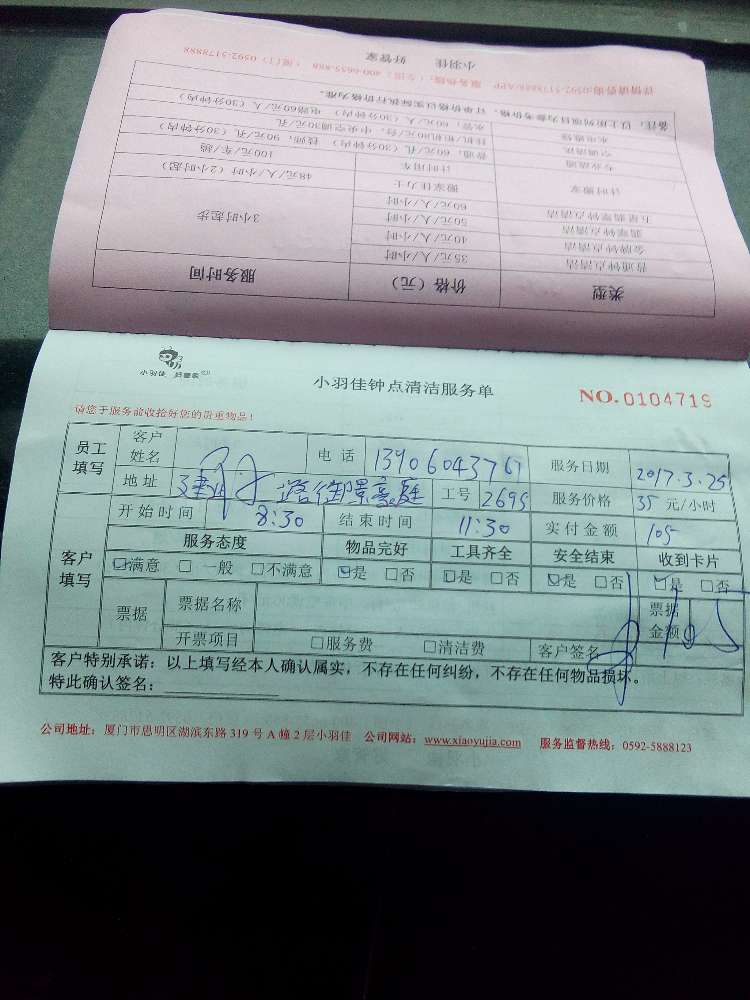 详情请咨询0592-5178888/APP 服务热线:(全国)400-6655-888 (厦门)0592-5178888
小羽佳 好管家
备注:以上所列项目为参考价格,订单价格以实际执行价格为准。
水电维修 水管:60元/人(30分钟内) 电路60元/人(30分钟内)
空调清洗 挂机/柜机80元/台,中央空调30元/孔
专业疏通 普通:60元/孔(30分钟内) 技师:90元/孔(30分钟内)
计时搬家 计时用车 100元/车/趟
搬家佳力士 48元/人/小时(2小时起)
五星翡翠钟点清洁 60元/人/小时
翡翠钟点清洁 50元/人/小时 3小时起步
金牌钟点清洁 40元/人/小时
普通钟点清洁 35元/人/小时
类型 价格(元) 服务时间
小羽佳 好管家
小羽佳钟点清洁服务单
NO.0104719
请您于服务前收拾好您的贵重物品!
员工填写 客户姓名 电话 13906043767 服务日期 2017.3.25
地址 建业路御景豪庭 工号 2695 服务价格 35 元/小时
开始时间 8:30 结束时间 11:30 实付金额 105
客户填写 服务态度 物品完好 工具齐全 安全结束 收到卡片
☑满意 □一般 □不满意 ☑是 □否 ☑是 □否 ☑是 □否 ☑是 □否
票据 票据名称 票据金额
开票项目 □服务费 □清洁费 客户签名
客户特别承诺:以上填写经本人确认属实,不存在任何纠纷,不存在任何物品损坏。
特此确认签名:
公司地址:厦门市思明区湖滨东路319号A幢2层小羽佳 公司网站:www.xiaoyujia.com 服务监督热线:0592-5888123